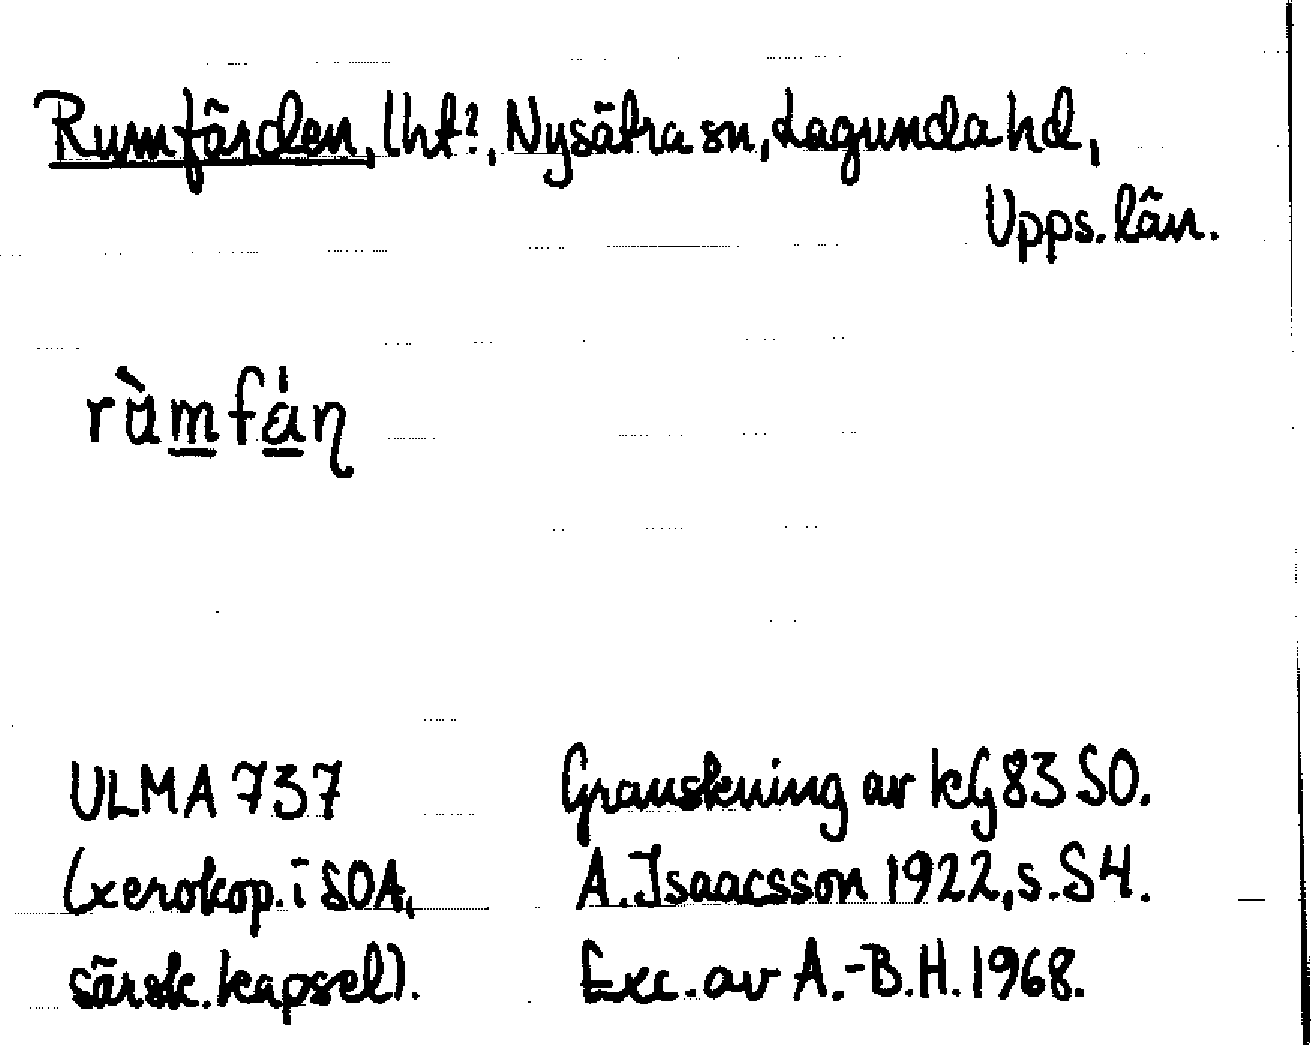 Rumfärden, lht?, Nysätra sn, Lagunda hd,
Upps. län.
rùmfán
ULMA 737
(xerokop. i SOA,
särsk. kapsel).
Granskning av kG 83 SO.
A. Isaacsson 1922, s. S4.
Exc. av A.-B.H. 1968.